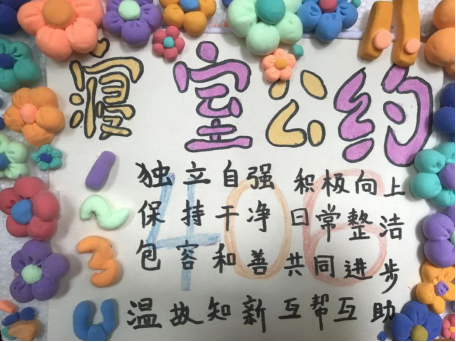 寝室公约
1 独立自强 积极向上
2 保持干净 日常整洁
3 包容和善 共同进步
4 温故知新 互帮互助
406